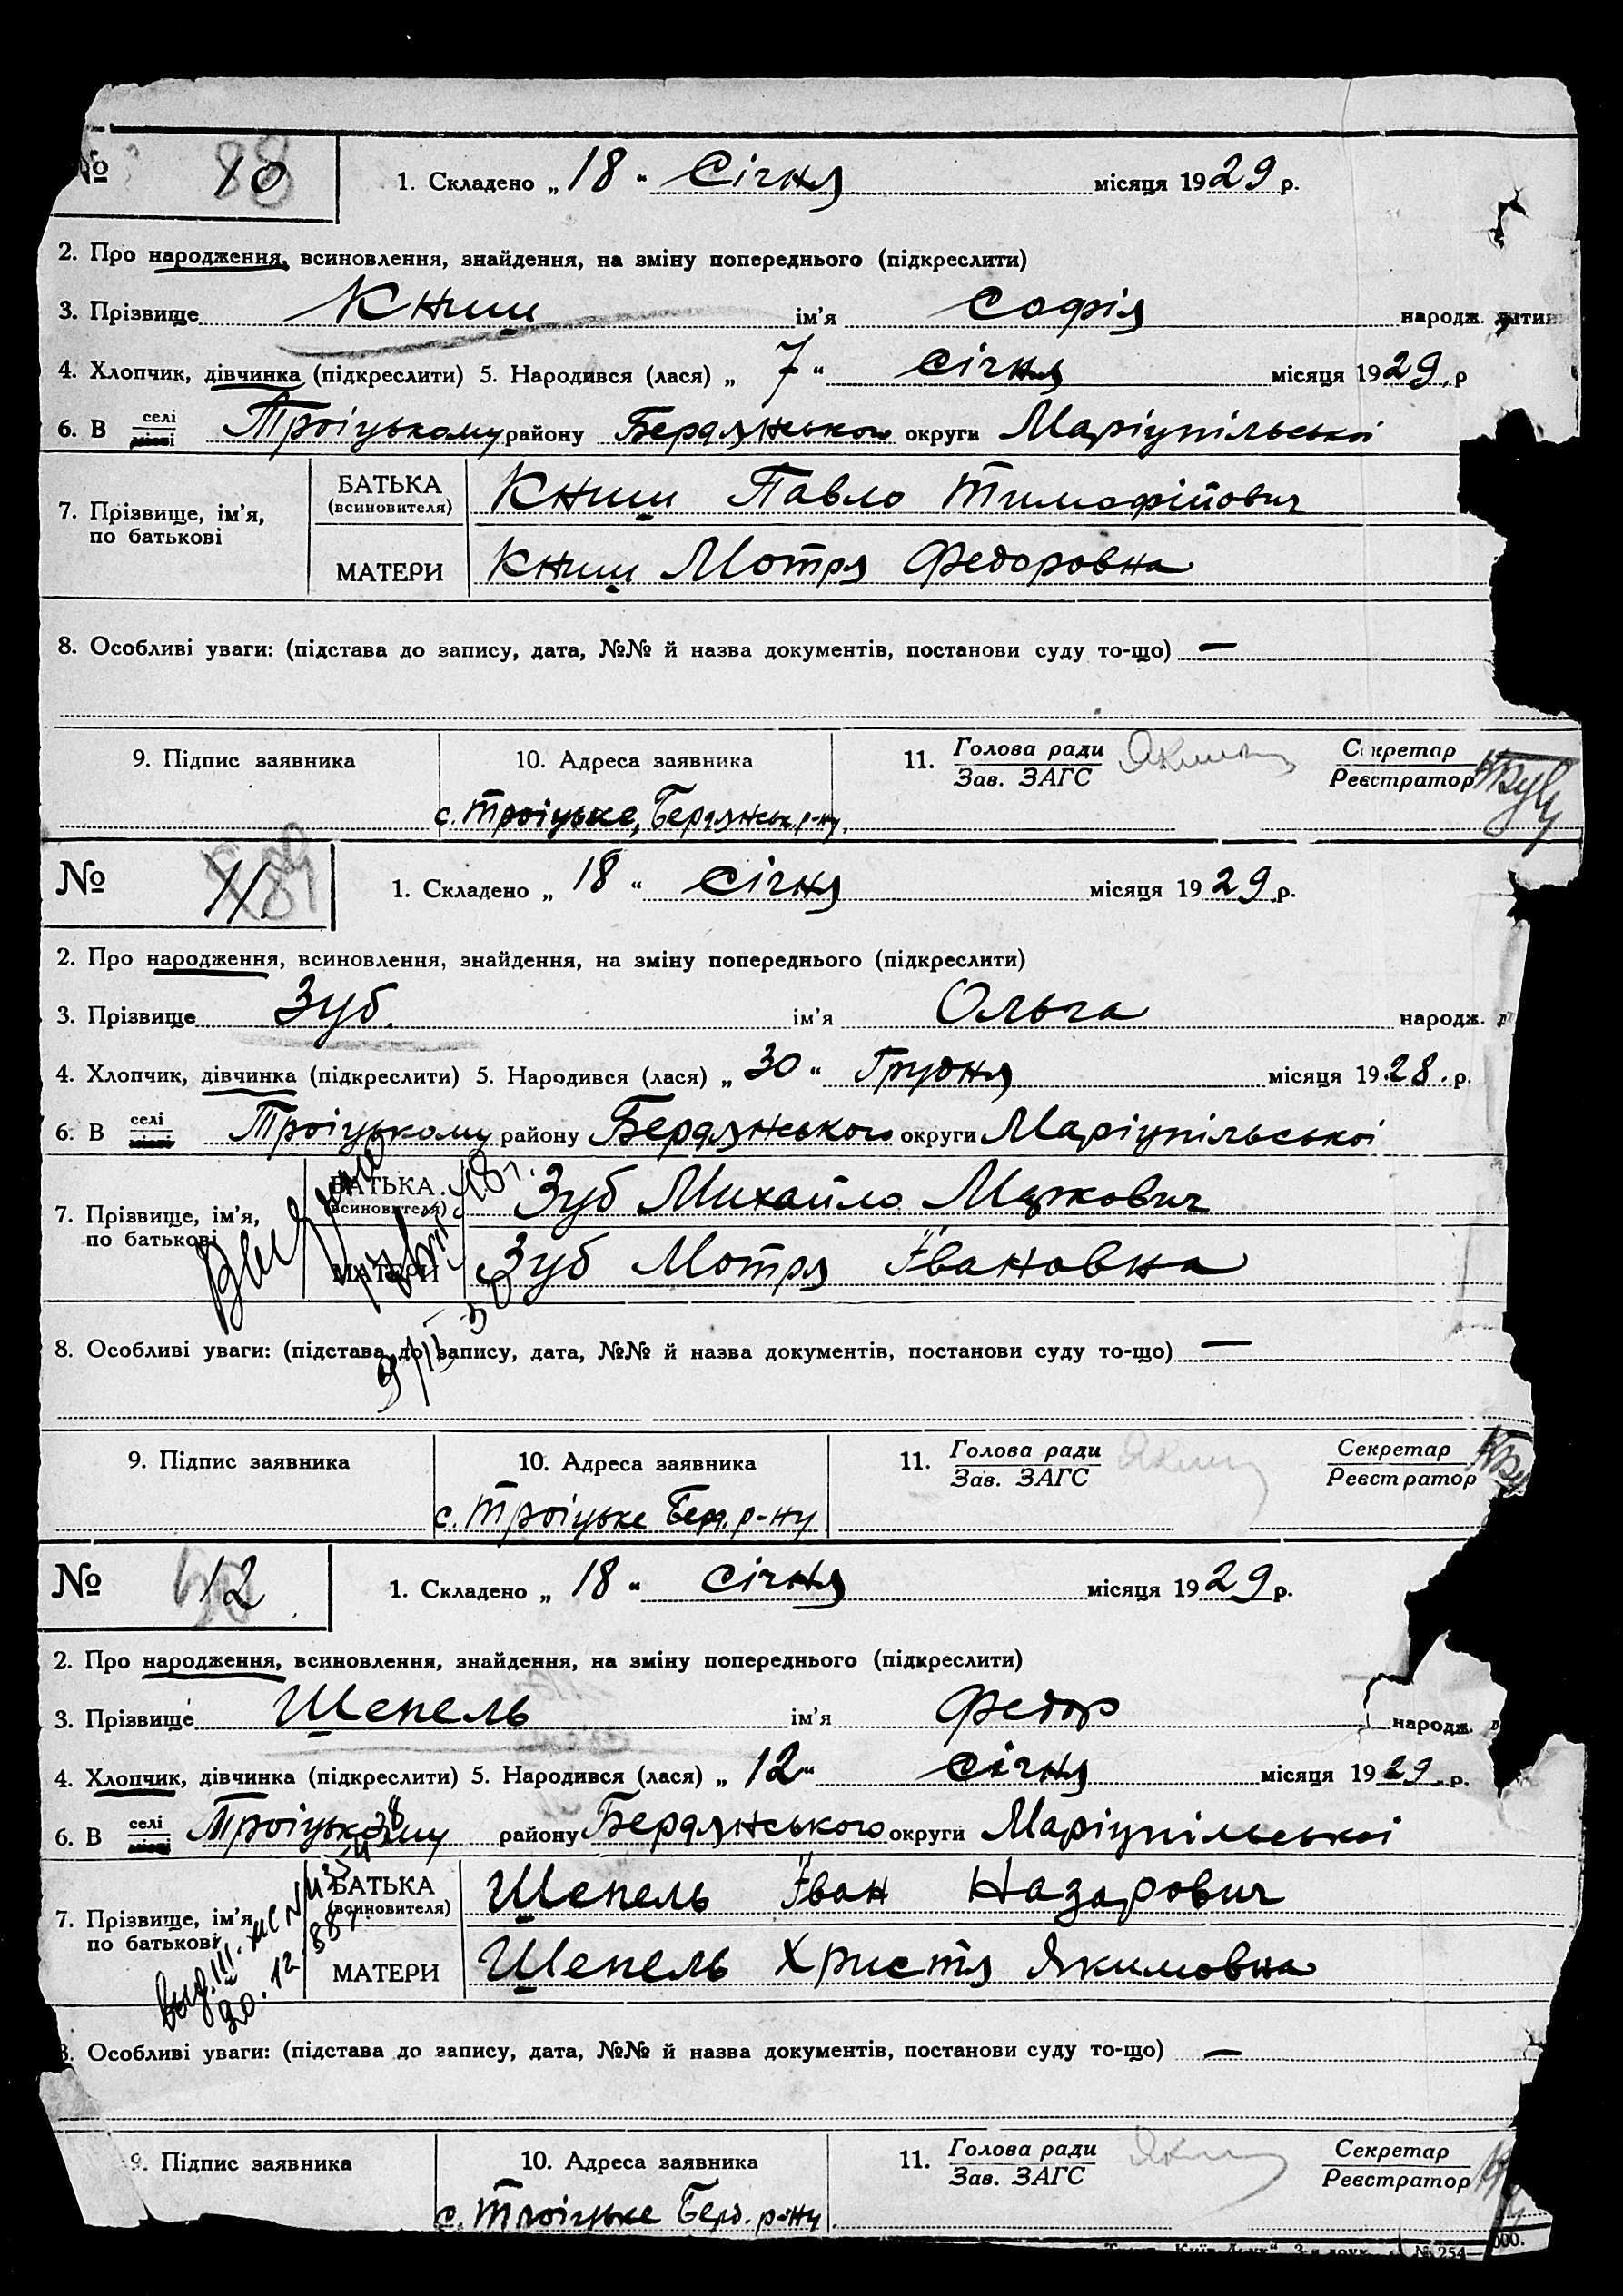 № 10 1. Складено „ 18 “ Січня місяця 1929 р.
2. Про народження, всиновлення, знайдення, на зміну попереднього (підкреслити)
3. Прізвище Книш ім’я Софія народж. дитини
4. Хлопчик, дівчинка (підкреслити) 5. Народився (лася) „ 7 “ Січня місяця 1929 р
6. В селі Троіцькому району Бердянського округи Маріупільської
7. Прізвище, ім’я, по батькові
БАТЬКА (всиновителя) Книш Павло Тимофійович
МАТЕРИ Книш Мотря Федоровна
8. Особливі уваги: (підстава до запису, дата, №№ й назва документів, постанови суду то-що) —
9. Підпис заявника 10. Адреса заявника 11. Голова ради Секретар
Зав. ЗАГС Реєстратор
с. Троіцьке, Бердянськ. р-ну.
№ 11. 1. Складено „ 18 “ Січня місяця 1929 р.
2. Про народження, всиновлення, знайдення, на зміну попереднього (підкреслити)
3. Прізвище Зуб. ім’я Ольга народж.
4. Хлопчик, дівчинка (підкреслити) 5. Народився (лася) „ 30 “ Грудня місяця 1928. р.
6. В селі Троіцькому району Бердянського округи Маріупільської
7. Прізвище, ім’я, по батькові
БАТЬКА (всиновителя) Зуб Михайло Маркович
МАТЕРИ Зуб Мотря Івановна
8. Особливі уваги: (підстава до запису, дата, №№ й назва документів, постанови суду то-що) —
9. Підпис заявника 10. Адреса заявника 11. Голова ради Секретар
Зав. ЗАГС Реєстратор
с. Троіцьке Берд. р-ну
№ 12 1. Складено „ 18 “ Січня місяця 1929 р.
2. Про народження, всиновлення, знайдення, на зміну попереднього (підкреслити)
3. Прізвище Шепель ім’я Федор народж.
4. Хлопчик, дівчинка (підкреслити) 5. Народився (лася) „ 12 “ Січня місяця 1929 р.
6. В селі Троіцькому району Бердянського округи Маріупільської
7. Прізвище, ім’я, по батькові
БАТЬКА (всиновителя) Шепель Іван Назарович
МАТЕРИ Шепель Христя Якимовна
8. Особливі уваги: (підстава до запису, дата, №№ й назва документів, постанови суду то-що) —
9. Підпис заявника 10. Адреса заявника 11. Голова ради Секретар
Зав. ЗАГС Реєстратор
с. Троіцьке Берд. р-ну.